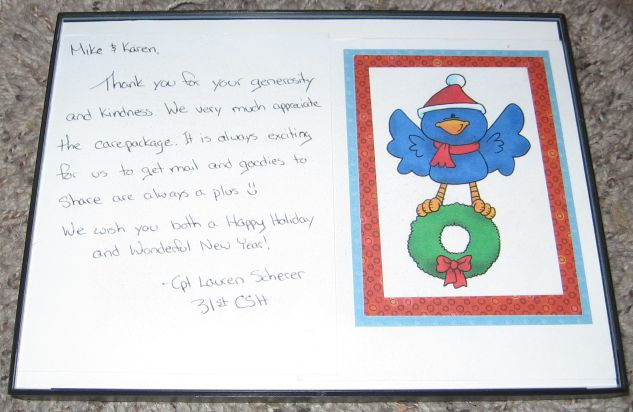 Mike & Karen,
Thank you for your generosity
and kindness. We very much appreciate
the carepackage. It is always exciting
for us to get mail and goodies to
share are always a plus ☺
We wish you both a Happy Holiday
and Wonderful New Year!
- Cpt Lauren Scherer
31st CSH